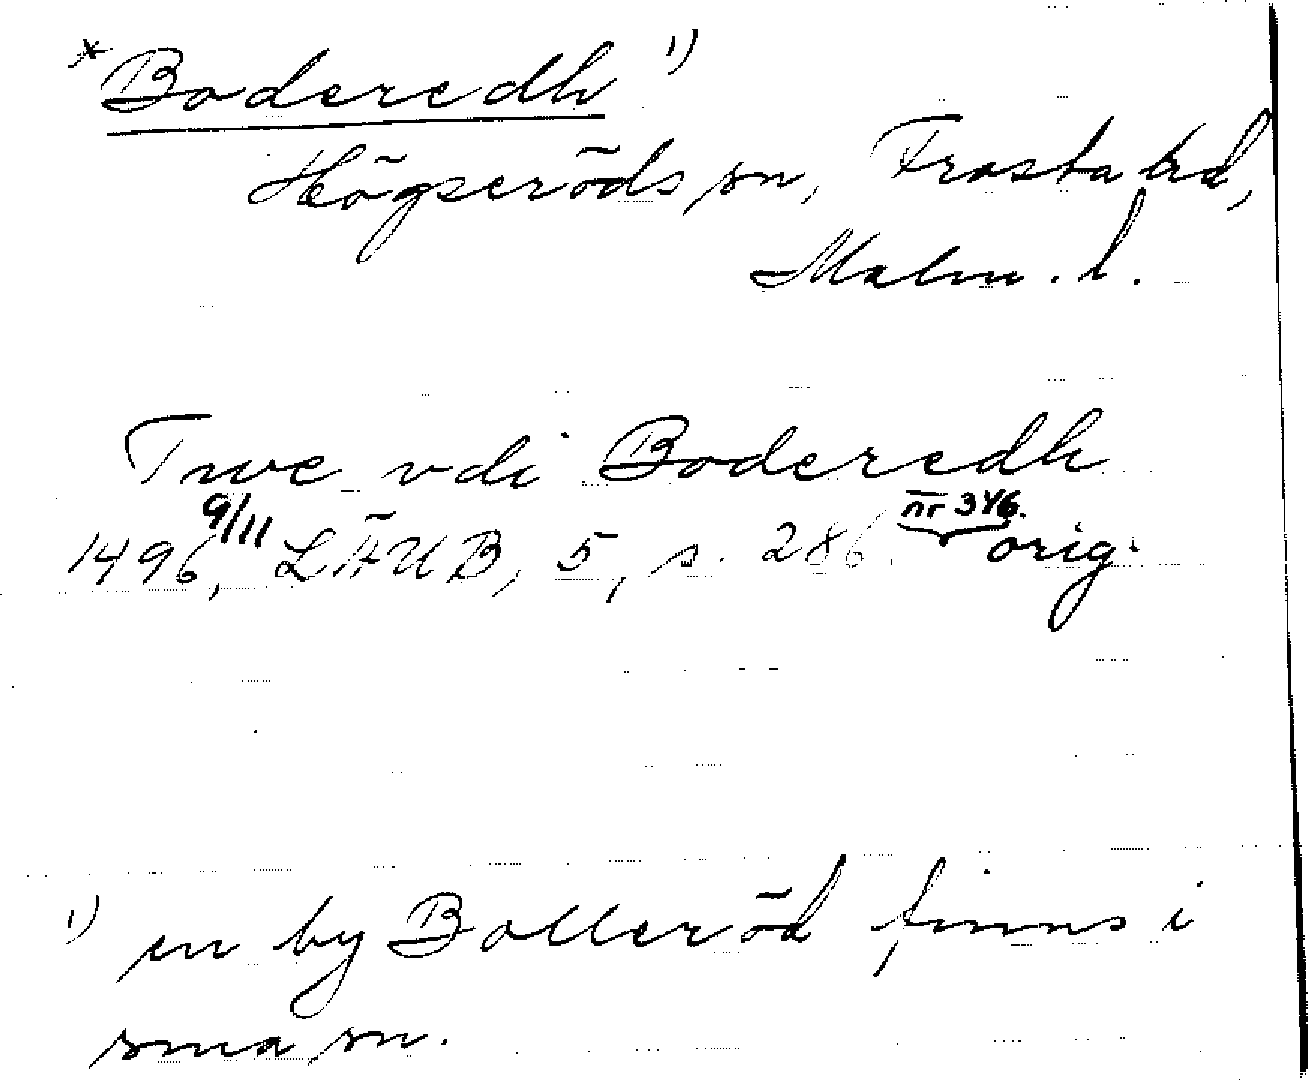 *Boderedh 1)
Högseröds sn, Frosta hd,
Malm. l.
Twe vdi Boderedh
1496, 9/11 LÄUB, 5, s. 286. nr 346. orig.
1) en by Bolleröd finns i
sma sn.